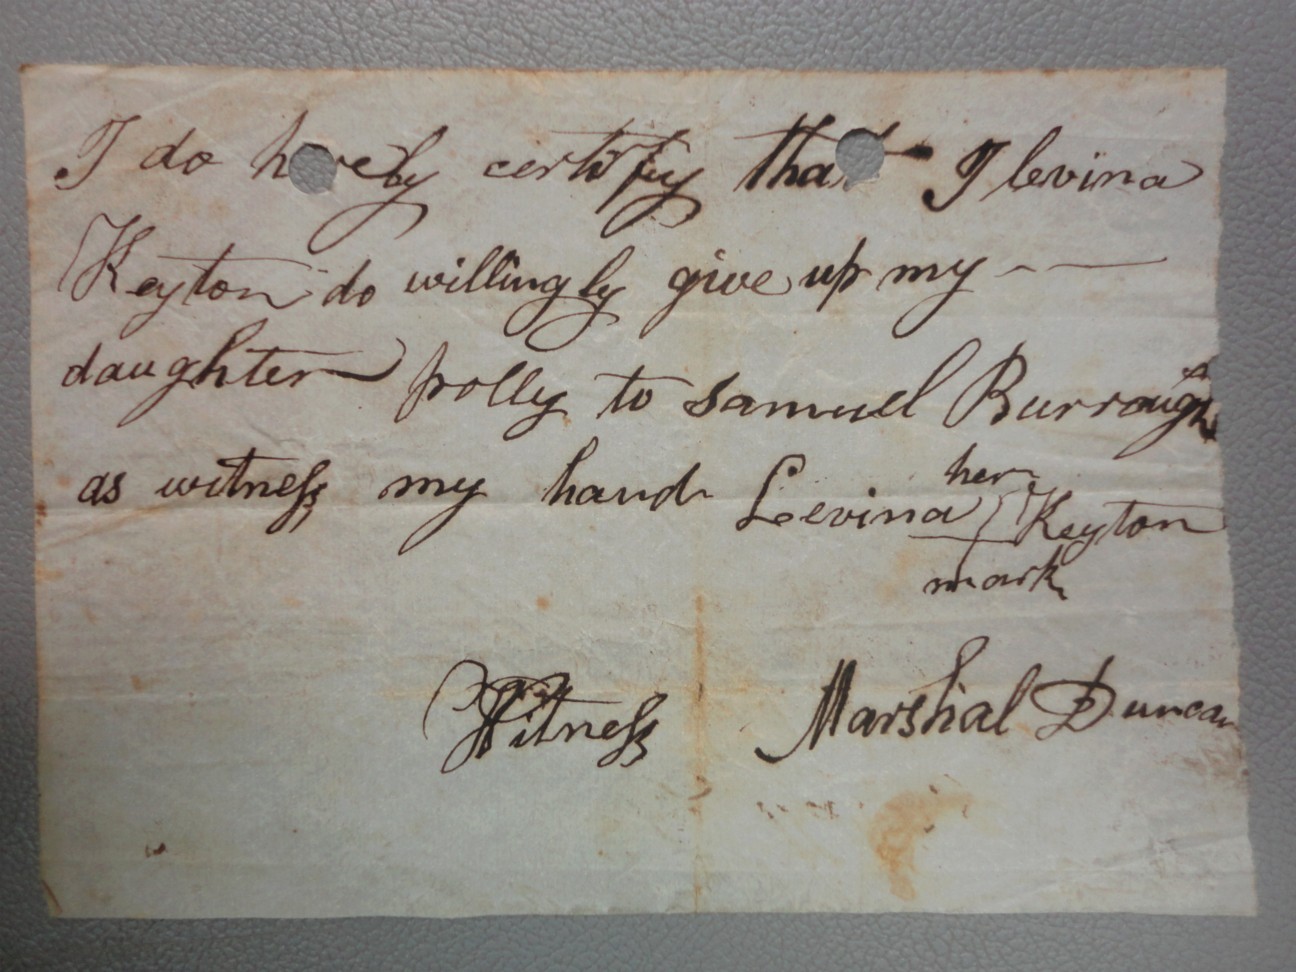 I do hereby certify that I levina
Keyton do willingly give up my — —
daughter polly to Samuel Burroughs
as witness my hand Levina her Keyton
mark
Witness Marshial Duncan